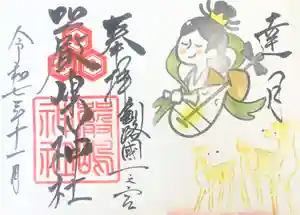 奉拝
釧路國一之宮
嚴島神社
嚴嶋
神社
令和七年十一月